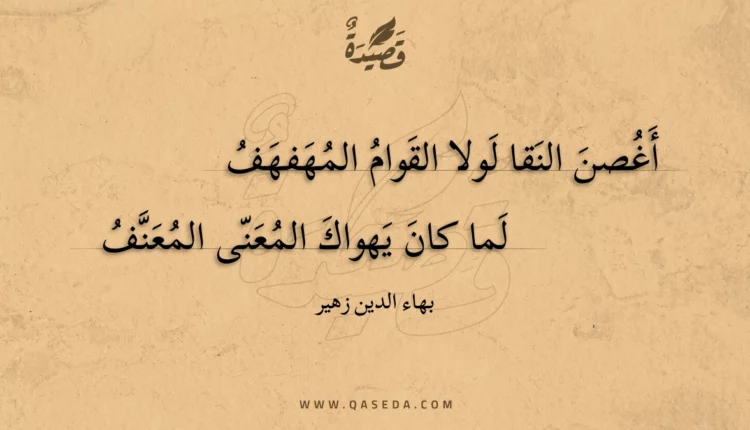 قَصِيدَةٌ
أَغُصنَ النَقا لَولا القَوامُ المُهَفهَفُ
لَما كانَ يَهواكَ المُعَنّى المُعَنَّفُ
بهاء الدين زهير
WWW.QASEDA.COM